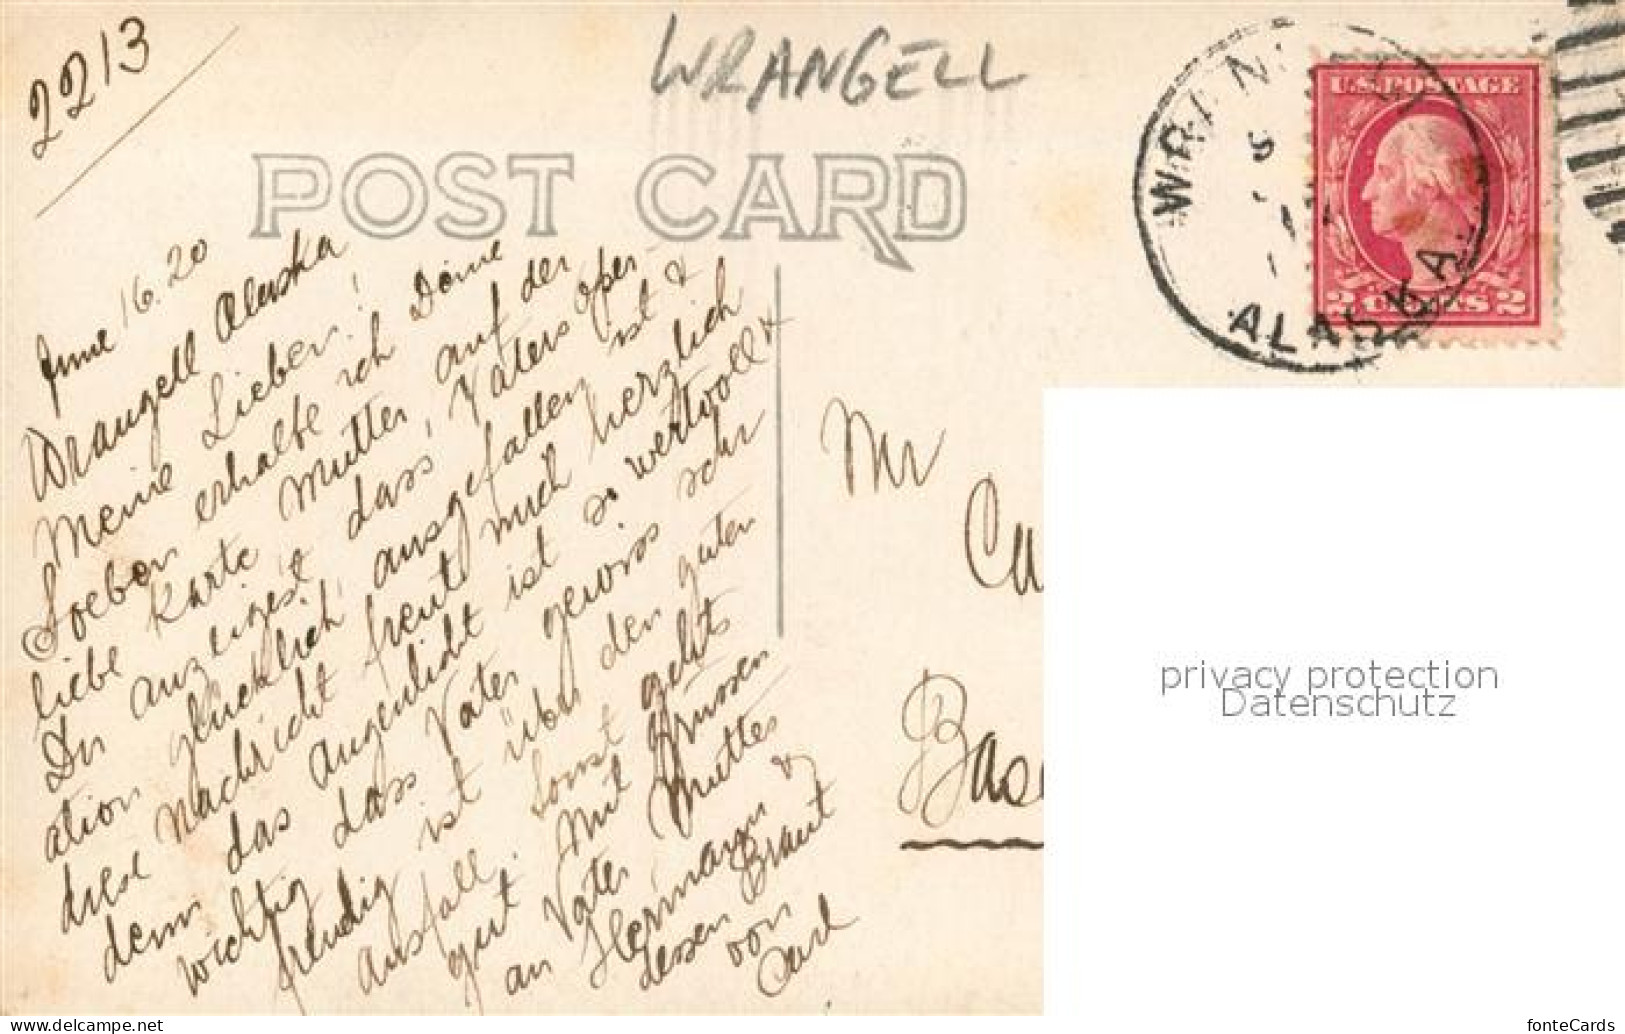 2213
WRANGELL
WRANGELL
ALASKA
U.S. POSTAGE
2 CENTS 2
POST CARD
June 16. 20
Wrangell Alaska
Meine Lieben!
Soeben erhalte ich Deine
liebe Karte Mutter, auf der
Du anzeigest dass, Vaters Oper-
ation glücklich ausgefallen ist &
diese Nachricht freut mich herzlich
denn das Augenlicht ist so wertvoll &
wichtig dass Vater gewiss sehr
freudig ist über den guten
Ausfall. Sonst gehts
gut. Mit Grüssen
an Vater Mutter
Hermann &
dessen Braut
von
Carl
Mr
Ca
Base
privacy protection
Datenschutz
fonteCards